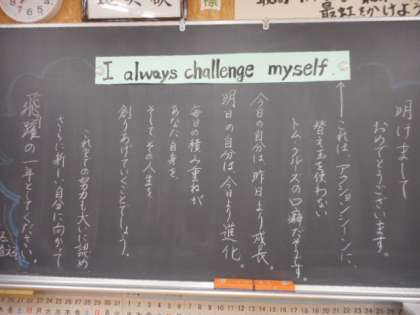 I always challenge myself.
明けまして
おめでとうございます。
これは、アクションシーンに、
替え玉を使わない
トム・クルーズの口癖だそうです。
今日の自分は、昨日より成長。
明日の自分は、今日より進化。
毎日の積み重ねが
あなた自身を、
そしてその人生を
創りあげていくことでしょう。
これまでの努力も大いに認め
さらに新しい自分に向かって
飛躍の一年としてください。